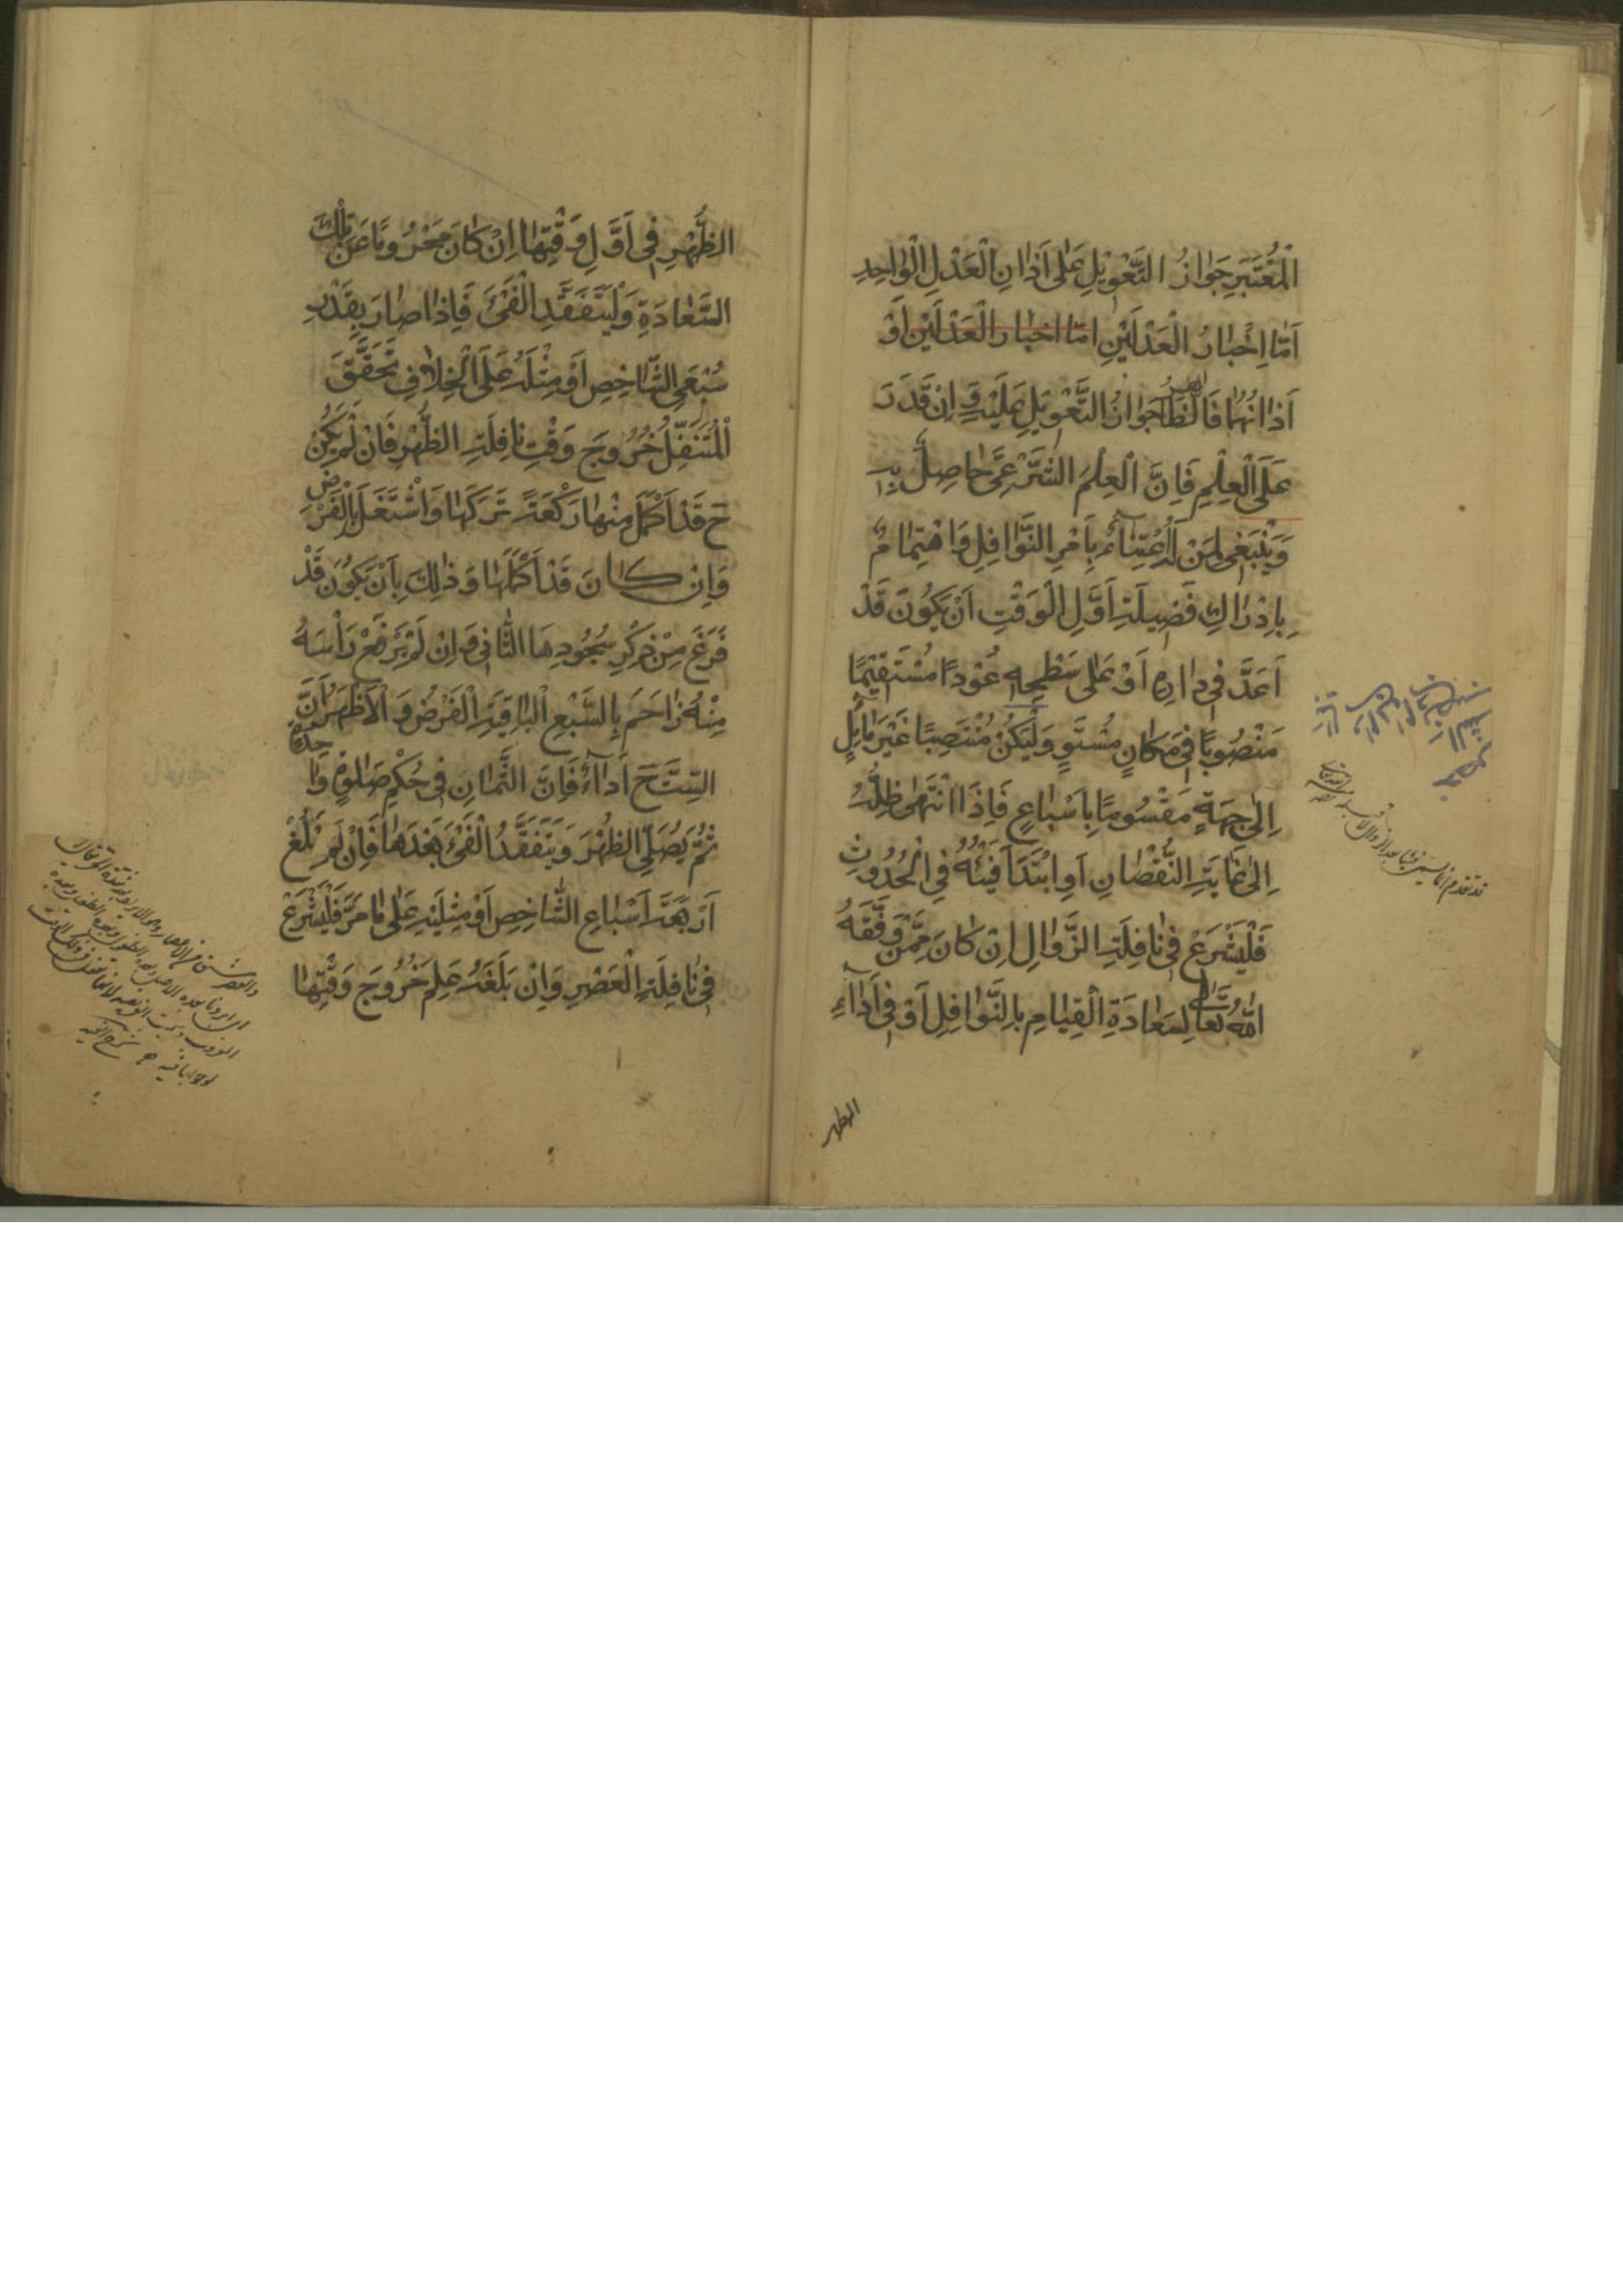 الْمُعْتَبَرِ جَوَازُ التَّعْوِيْلِ عَلٰى اَذَانِ الْعَدْلِ الْوَاحِدِ
اَمَّا اِخْبَارُ الْعَدْلَيْنِ امّا اخبار الْعَدْلَيْنِ اَوْ
اَذَانُهُمَا فَالظَّاهِرُ جَوَازُ التَّعْوِيْلِ عَلَيْهِ وَ اِنْ قَدَرَ
عَلَى الْعِلْمِ فَاِنَّ الْعِلْمَ الشَّرْعِىَّ حَاصِلٌ بِهِ
وَيَنْبَغِى لِمَنْ لَهُ اعْتِنَاءٌ بِاَمْرِ النَّوَافِلِ وَ اهْتِمَامٌ
بِاِدْرَاكِ فَضِيلَةِ اَوَّلِ الْوَقْتِ اَنْ يَكُونَ قَدْ
اَعَدَّ فِى دَارِهِ اَوْ عَلٰى سَطْحِهِ عُوْدًا مُسْتَقِيْمًا
مَنْصُوبًا فِى مَكَانٍ مُسْتَوٍ وَلْيَكُنْ مُنْتَصِبًا غَيْرَ مَائِلٍ
اِلٰى جِهَةٍ مَقْسُومًا بِاَسْبَاعٍ فَاِذَا انْتَهٰى ظِلُّهُ
اِلٰى غَايَةِ النُّقْصَانِ اَوِ ابْتَدَاَ فَيْئُهُ فِى الْحُدُوثِ
فَلْيَشْرَعْ فِى نَافِلَةِ الزَّوَالِ اِنْ كَانَ مِمَّنْ وَفَّقَهُ
اللّٰهُ تَعَالٰى لِسَعَادَةِ الْقِيَامِ بِالنَّوَافِلِ اَوْ فِى اَدَآءِ
الظهر
الظُّهْرِ فِى اَوَّلِ وَقْتِهَا اِنْ كَانَ مَحْرُومًا عَنْ تِلْكَ
السَّعَادَةِ وَلْيَتَفَقَّدِ الْفَىْءَ فَاِذَا صَارَ بِقَدْرِ
سُبْعَىِ الشَّاخِصِ اَوْ مِثْلَهُ عَلَى الْخِلَافِ تَحَقَّقَ
الْمُتَنَفِّلُ خُرُوجَ وَقْتِ نَافِلَةِ الظُّهْرِ فَاِنْ لَمْ يَكُنْ
حَ قَدْ اَكْمَلَ مِنْهَا رَكْعَةً تَرَكَهَا وَ اشْتَغَلَ بِالْفَرْضِ
وَاِنْ كَانَ قَدْ اَكْمَلَهَا وَ ذٰلِكَ بِاَنْ يَكُونَ قَدْ
فَرَغَ مِنْ ذِكْرِ سُجُودِهَا الثَّانِى وَ اِنْ لَمْ يَرْفَعْ رَاْسَهُ
مِنْهُ زَاحَمَ بِالسَّبْعِ الْبَاقِيَةِ الْفَرْضَ وَ الْاَظْهَرُ اَنَّ
السِّتَّ حَ اَدَآءٌ فَاِنَّ الثَّمَانِ فِى حُكْمِ صَلٰوةٍ وَاحِدَةٍ
ثُمَّ يُصَلِّى الظُّهْرَ وَ يَتَفَقَّدُ الْفَىْءَ بَعْدَهَا فَاِنْ لَمْ يَبْلُغْ
اَرْبَعَةَ اَسْبَاعِ الشَّاخِصِ اَوْ مِثْلَيْهِ عَلٰى مَا مَرَّ فَلْيَشْرَعْ
فِى نَافِلَةِ الْعَصْرِ وَاِنْ بَلَغَهُ عَلِمَ خُرُوجَ وَقْتِهَا